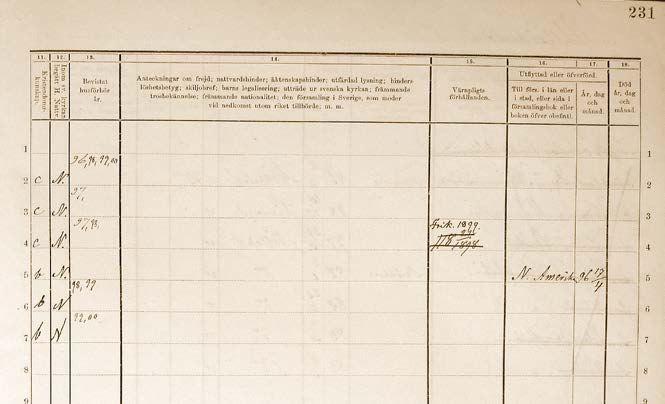 231
11. 12. 13. 14. 15. 16. 17. 18.
Kristendoms-
kunskap.
Inom sv. kyrkan
begått H. Nattv.
Bevistat
husförhör
år.
Anteckningar om frejd; nattvardshinder; äktenskapshinder; utfärdad lysning; hinders-
löshetsbetyg; skiljobref; barns legalisering; utträde ur svenska kyrkan; främmande
trosbekännelse; främmande nationalitet; den församling i Sverige, som moder
vid nedkomst utom riket tillhörde; m. m.
Värnpligts
förhållanden.
Utflyttad eller öfverförd.
Till förs. i län eller
i stad, eller sida i
församlingsbok eller
boken öfver obefintl.
År, dag
och
månad.
Död
år, dag
och
månad.
1
96, 98, 99, 00
2 c N.
97,
3 c N.
97, 98. Frik. 1899.
4 c N. 118 1898
5 b N. N. Amerika 96 17/4
98, 99
6 b N
99, 00
7 b N
8
9